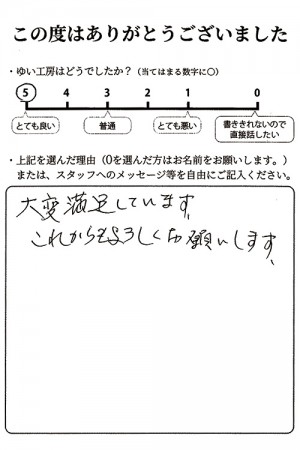 この度はありがとうございました
・ゆい工房はどうでしたか？（当てはまる数字に○）
5 4 3 2 1 0
とても良い 普通 とても悪い 書ききれないので直接話したい
・上記を選んだ理由（0を選んだ方はお名前をお願いします。）
または、スタッフへのメッセージ等を自由にご記入ください。
大変満足しています。
これからもよろしくお願いします。